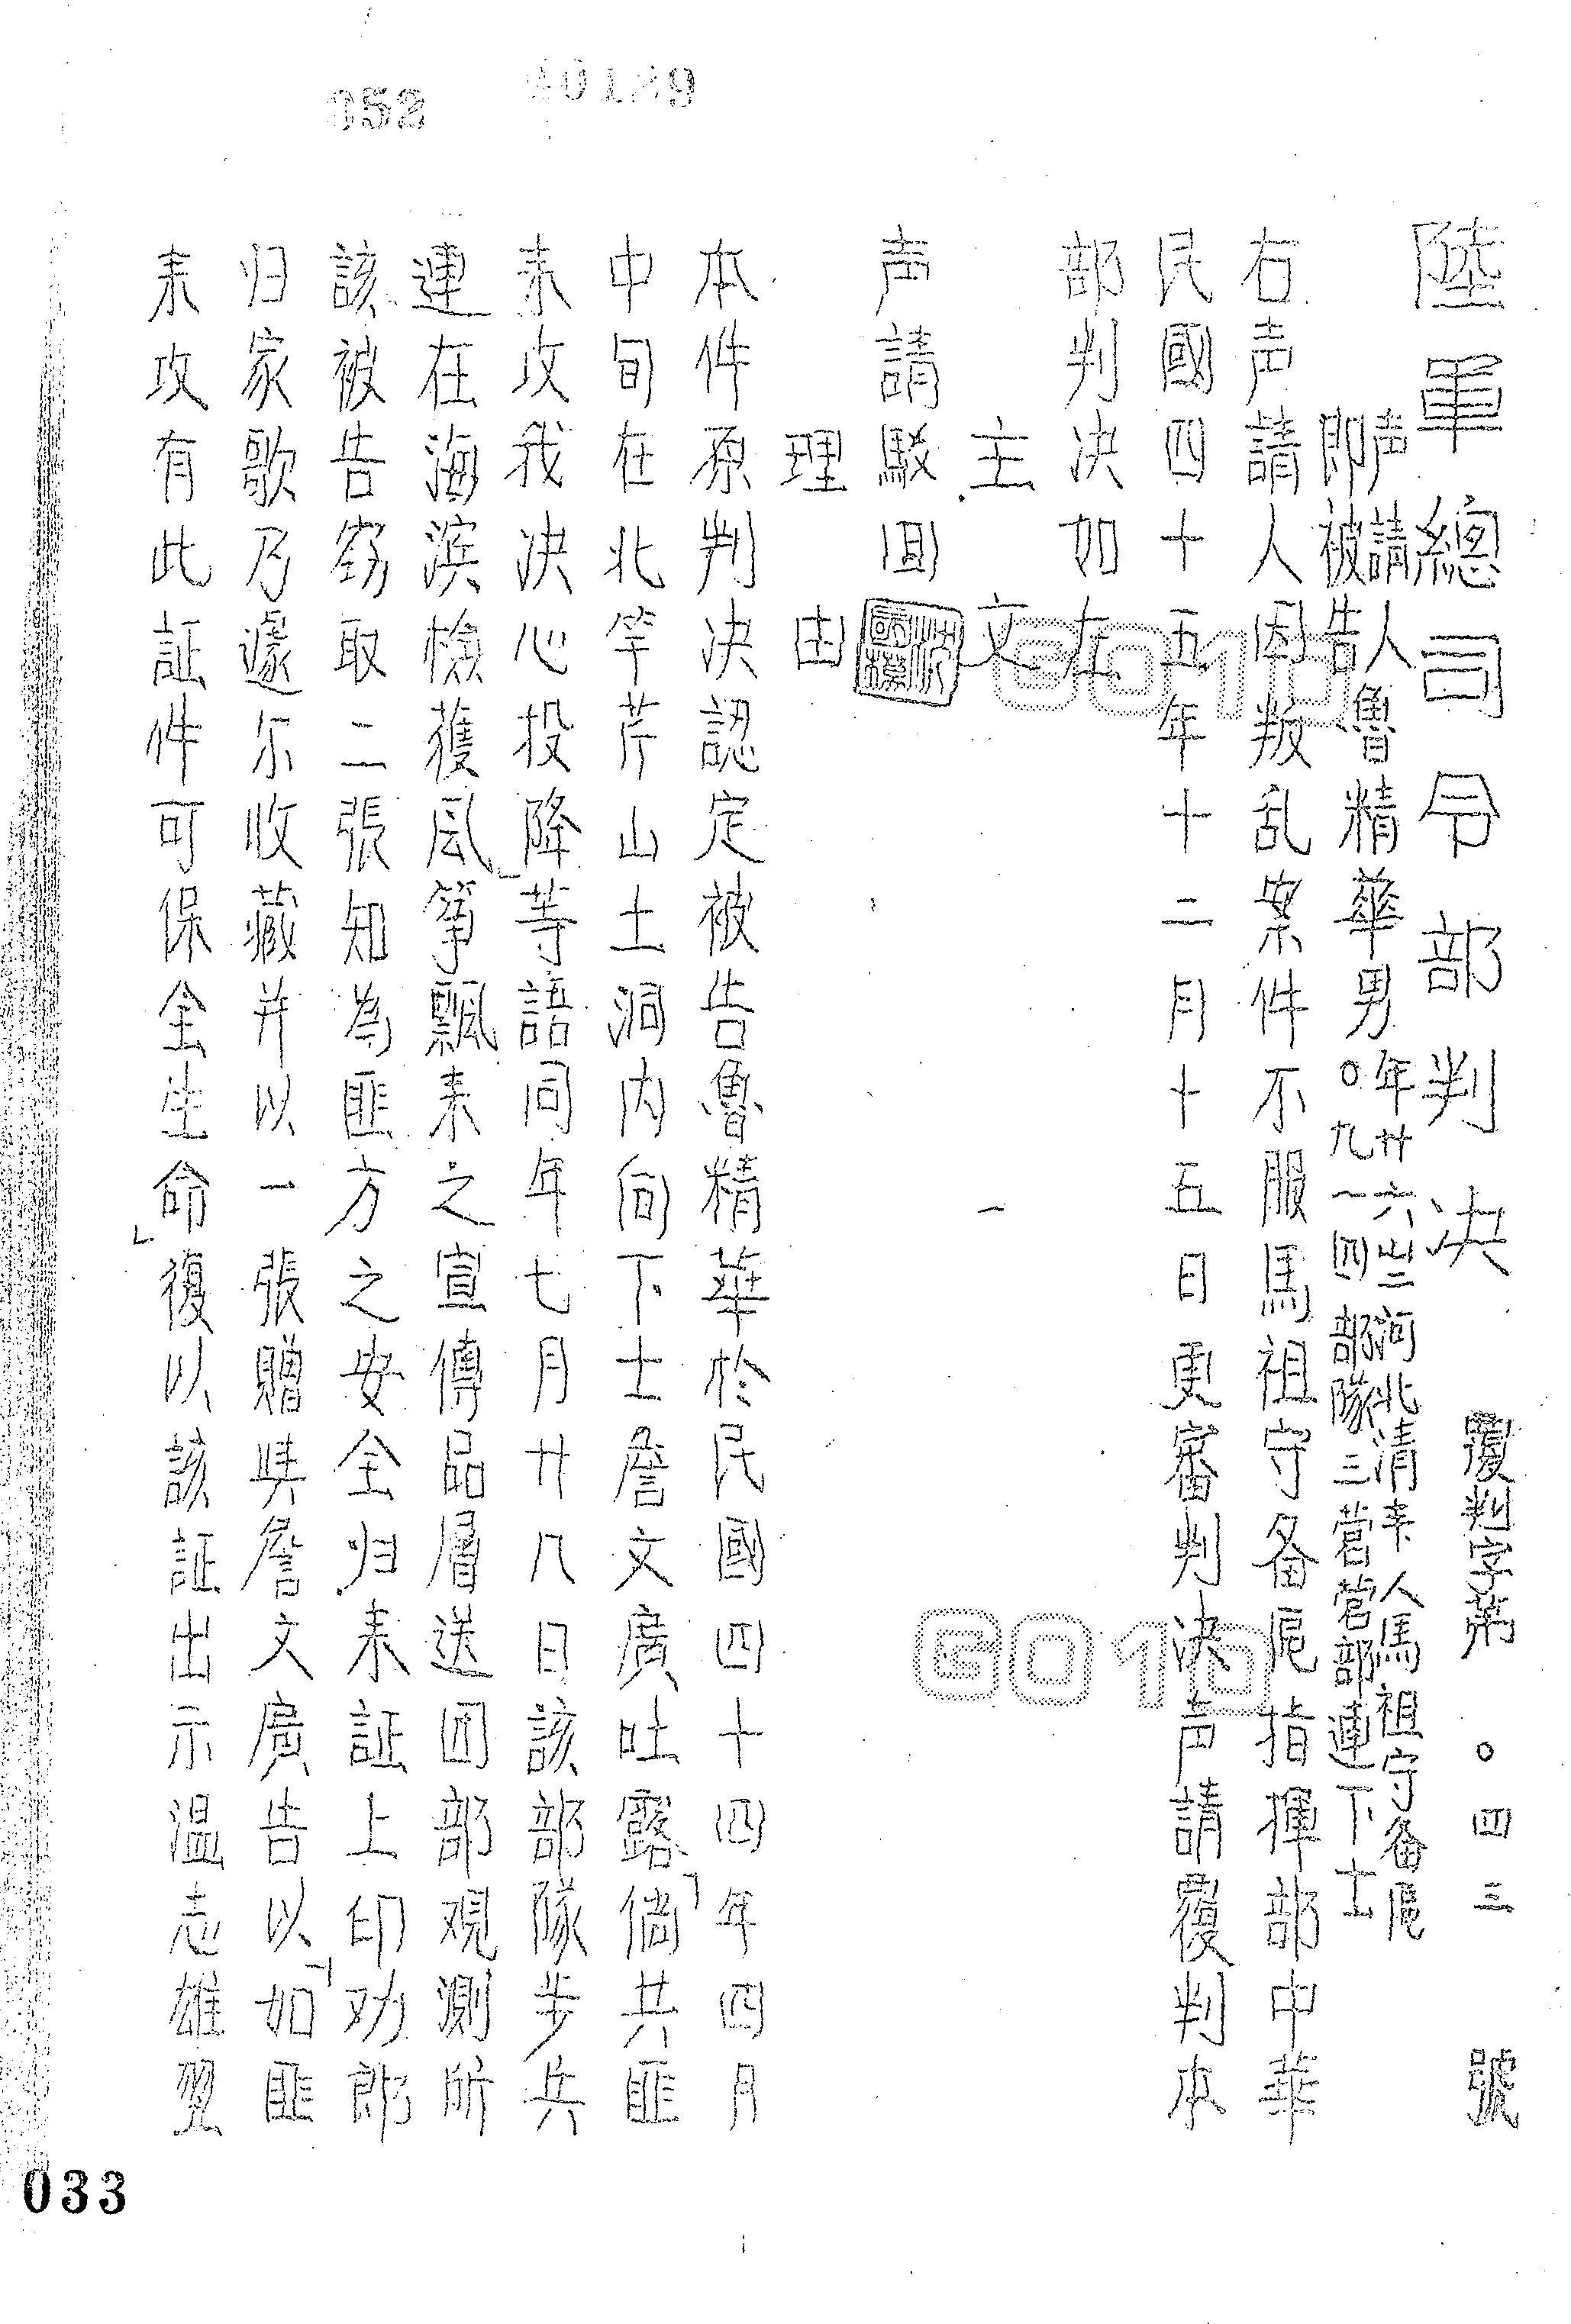 052
40129
陸軍總司令部判決
覆判字第〇四三號
声請人
即被告
魯精華男
年廿六歲河北清苑人馬祖守备區
〇九一四部隊三營營部連下士
右声請人因叛乱案件不服馬祖守备區指揮部中華
民國四十五年十二月十五日更審判决声請覆判本
部判决如左
主文
声請駁回
理由
本件原判决認定被告魯精華於民國四十四年四月
中旬在北竿芹山土洞内向下士詹文廣吐露「倘共匪
来攻我决心投降」等語同年七月廿八日該部隊步兵
連在海濱檢獲風箏飄来之宣傳品層送团部观測所
該被告窃取二張知為匪方之安全归来証上印劝郎
归家歌乃遽尔收藏并以一張贈與詹文廣告以「如匪
来攻有此証件可保全生命」復以該証出示溫志雄翌
GO10
GO10
033